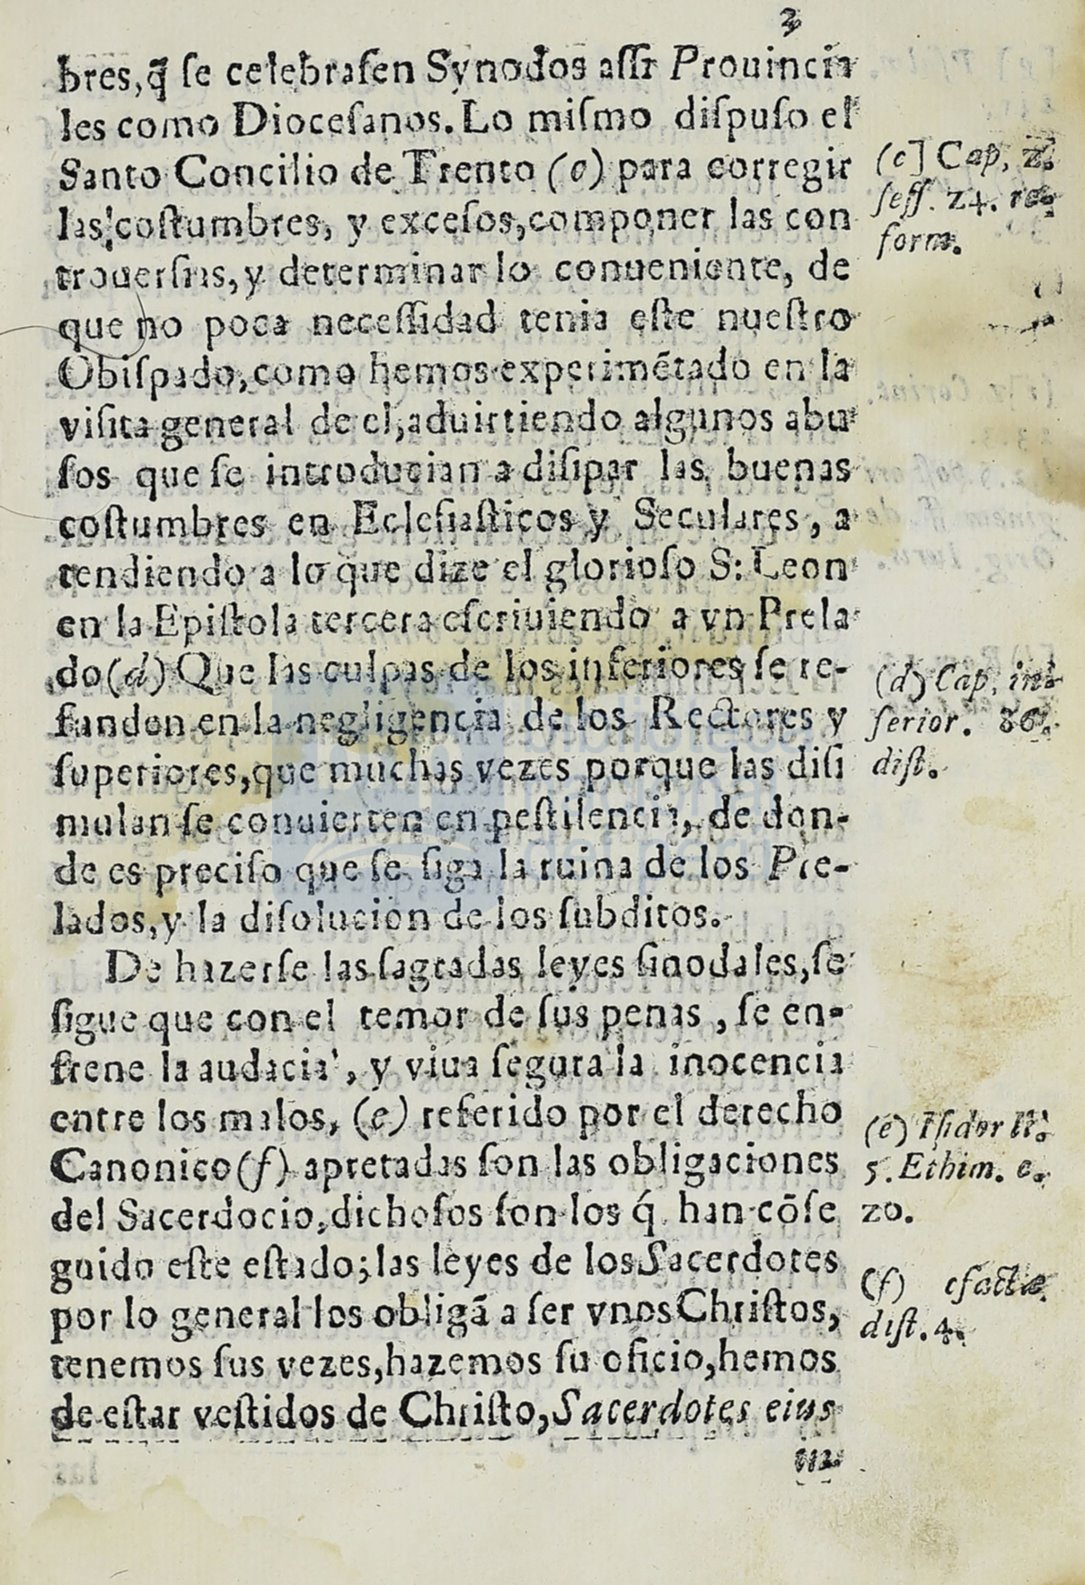 3
bres, q̃ ſe celebraſen Synodos aſſi Prouincia
les como Dioceſanos. Lo miſmo diſpuſo el
Santo Concilio de Trento (c) para corregir
las coſtumbres, y exceſos, componer las con
trouerſias, y determinar lo conueniente, de
que no poca neceſſidad tenia eſte nueſtro
Obiſpado, como hemos experimẽtado en la
viſita general de el, aduirtiendo algunos abu
ſos que ſe introducian a diſipar las buenas
coſtumbres en Ecleſiaſticos y Seculares, a
tendiendo a lo que dize el glorioſo S: Leon
en la Epiſtola tercera eſcriuiendo a vn Prela
do (d) Que las culpas de los inferiores ſe re-
fundon en la negligencia de los Rectores y
ſuperiores, que muchas vezes porque las diſi
mulan ſe conuierten en peſtilencia, de don-
de es preciſo que ſe ſiga la ruina de los Pre-
lados, y la diſolucion de los ſubditos.
De hazerſe las ſagradas leyes ſinodales, ſe
ſigue que con el temor de ſus penas, ſe en-
frene la audacia, y viua ſegura la inocencia
entre los malos, (e) referido por el derecho
Canonico (f) apretadas ſon las obligaciones
del Sacerdocio, dichoſos ſon los q́ han cõſe
guido eſte eſtado; las leyes de los Sacerdotes
por lo general los obligã a ſer vnos Chriſtos,
tenemos ſus vezes, hazemos ſu oficio, hemos
de eſtar veſtidos de Chriſto, Sacerdotes eius
in-
(c] Cap, 2.
ſeſſ. 24. re-
form.
(d) Cap, in-
ferior. 86.
diſt.
(e) Iſidor li.
5. Ethim. c.
20.
(f) c factæ
diſt. 4.